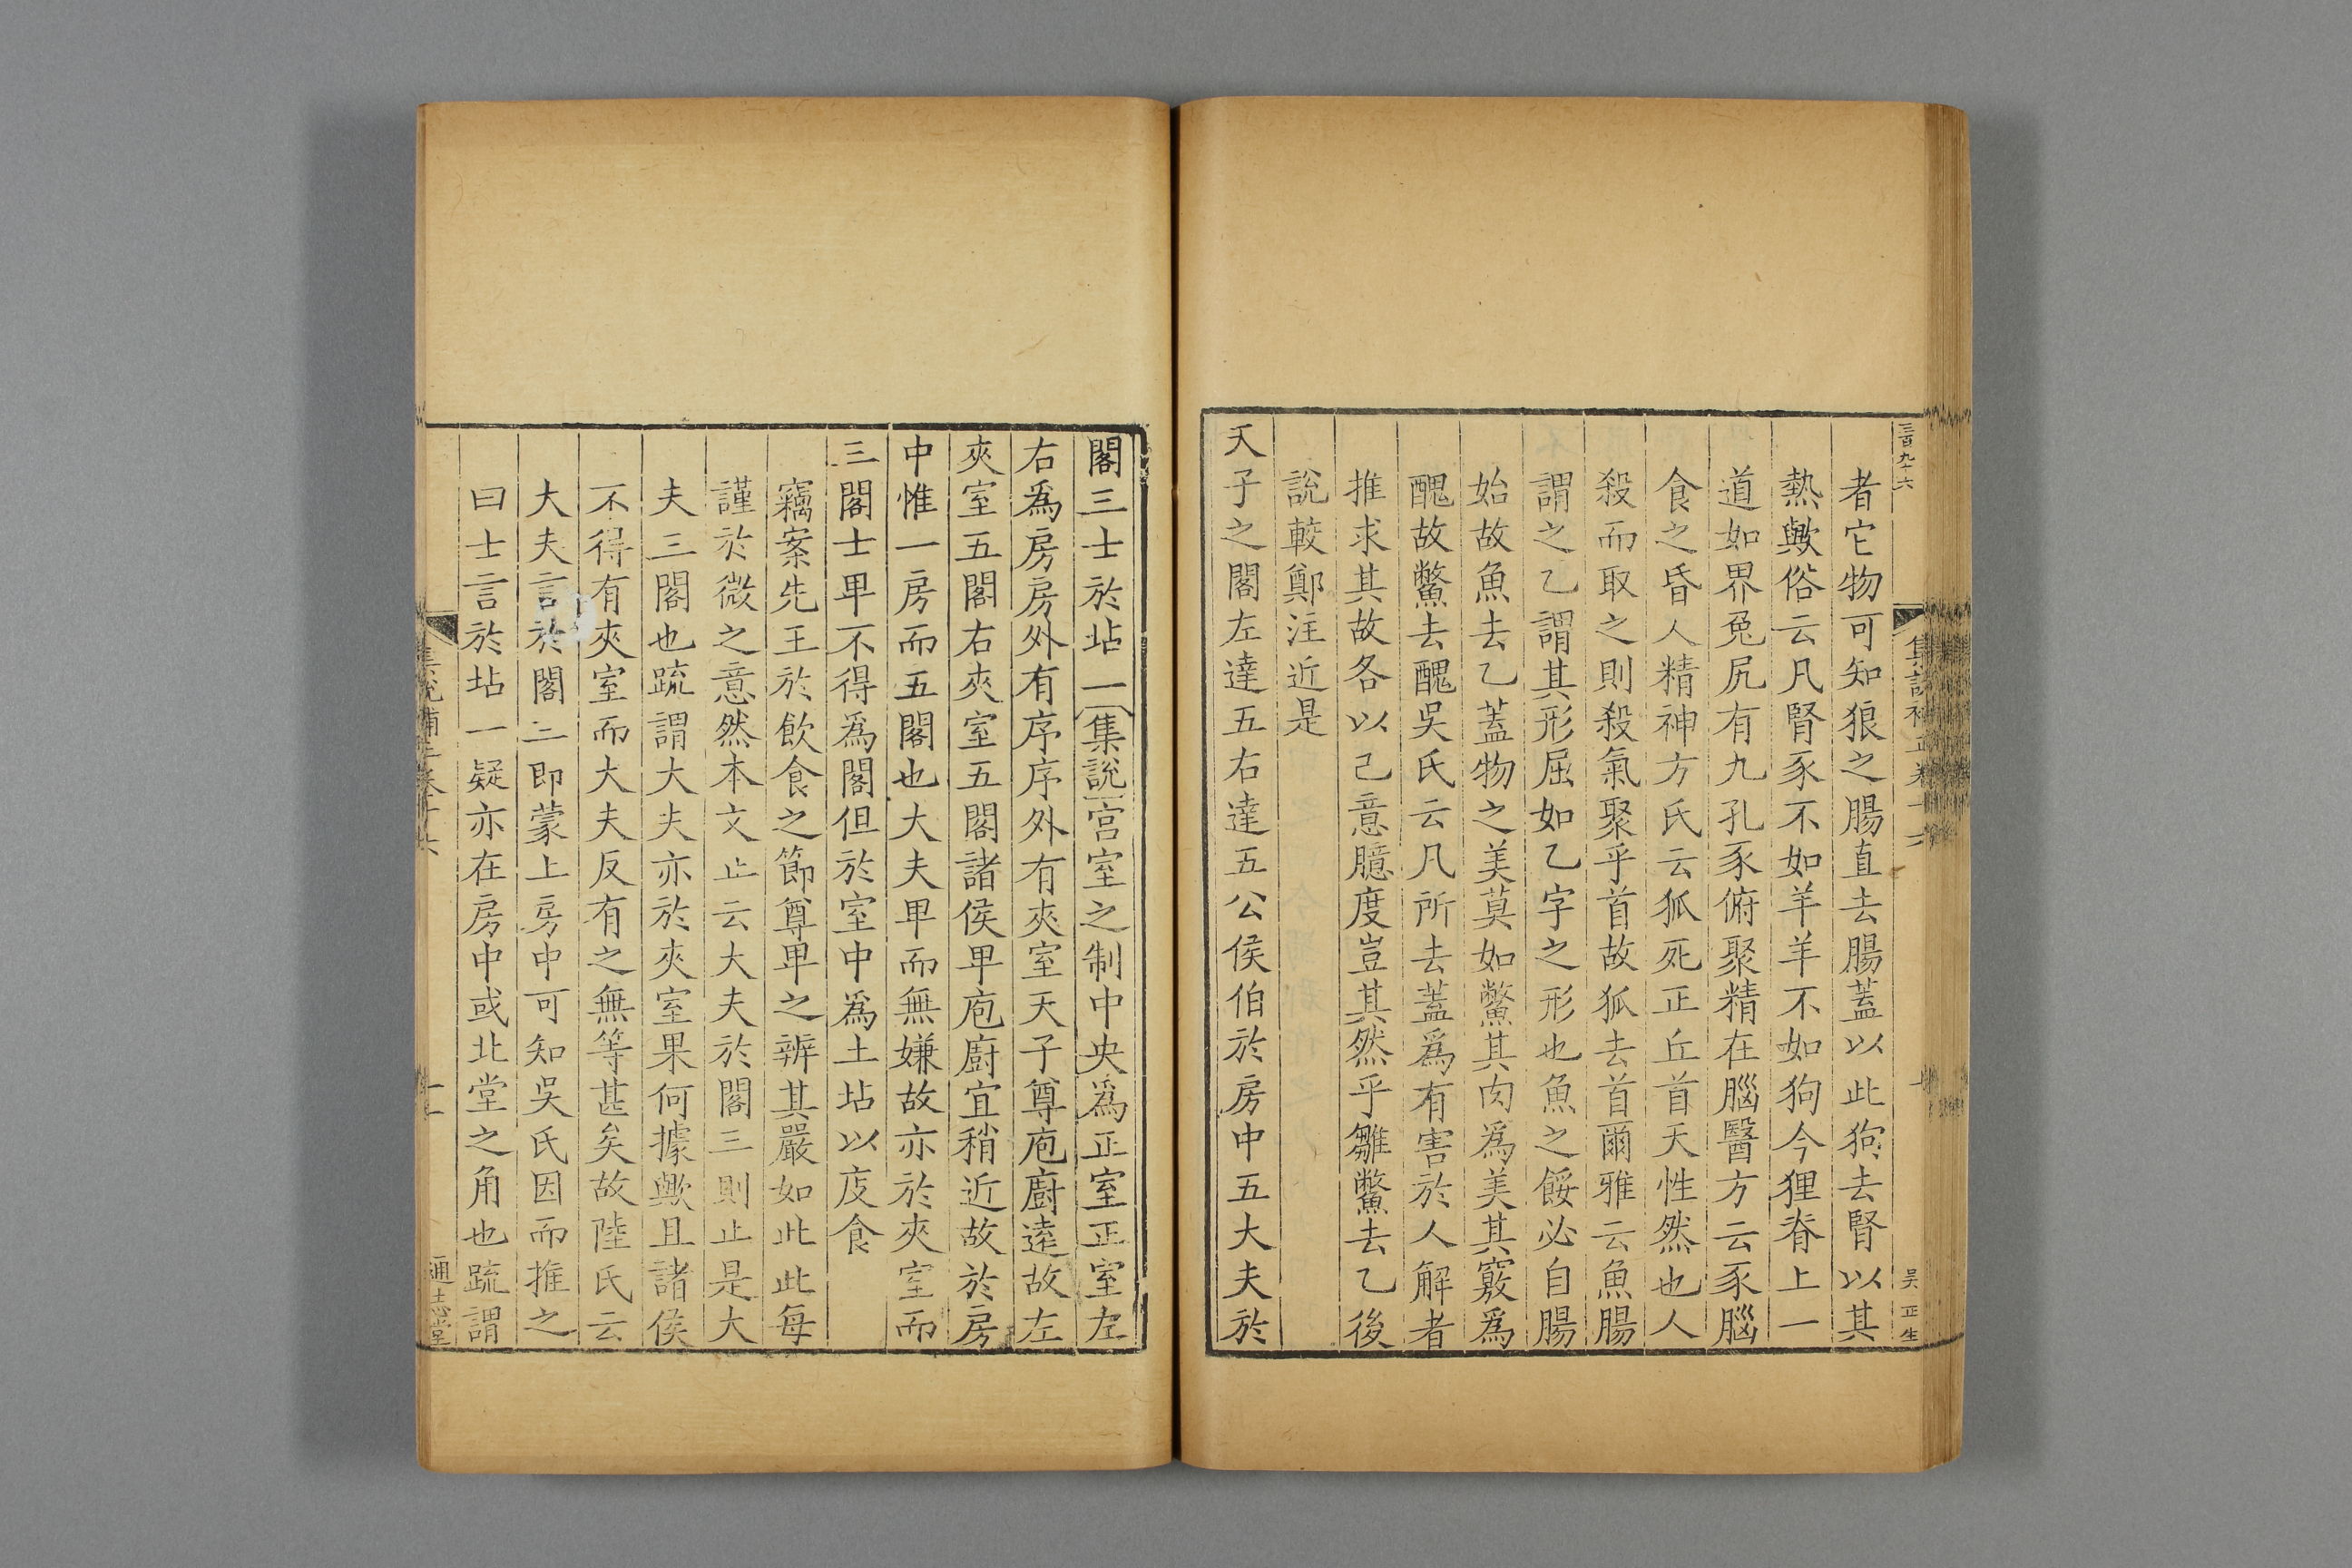 三百九十六
集說補正卷十六
吴正生
者它物可知狼之腸直去腸蓋以此狗去腎以其
熱歟俗云凡腎豕不如羊羊不如狗今狸脊上一
道如界兔尻有九孔豕俯聚精在腦醫方云豕腦
食之昏人精神方氏云狐死正丘首天性然也人
殺而取之則殺氣聚乎首故狐去首爾雅云魚腸
謂之乙謂其形屈如乙字之形也魚之餒必自腸
始故魚去乙蓋物之美莫如鱉其肉為美其竅爲
醜故鱉去醜吳氏云凡所去蓋爲有害於人解者
推求其故各以己意臆度豈其然乎雛鱉去乙後
說較鄭注近是
天子之閣左達五右達五公侯伯於房中五大夫於
閣三士於坫一集說宮室之制中央爲正室正室左
右爲房房外有序序外有夾室天子尊庖廚遠故左
夾室五閣右夾室五閣諸侯卑庖廚宜稍近故於房
中惟一房而五閣也大夫卑而無嫌故亦於夾室而
三閣士卑不得爲閣但於室中爲土坫以庋食
竊案先王於飲食之節尊卑之辨其嚴如此此每
謹於微之意然本文止云大夫於閣三則止是大
夫三閣也疏謂大夫亦於夾室果何據歟且諸侯
不得有夾室而大夫反有之無等甚矣故陸氏云
大夫言於閣三即蒙上房中可知吳氏因而推之
曰士言於坫一疑亦在房中或北堂之角也疏謂
集說補正卷十六
十一
通志堂